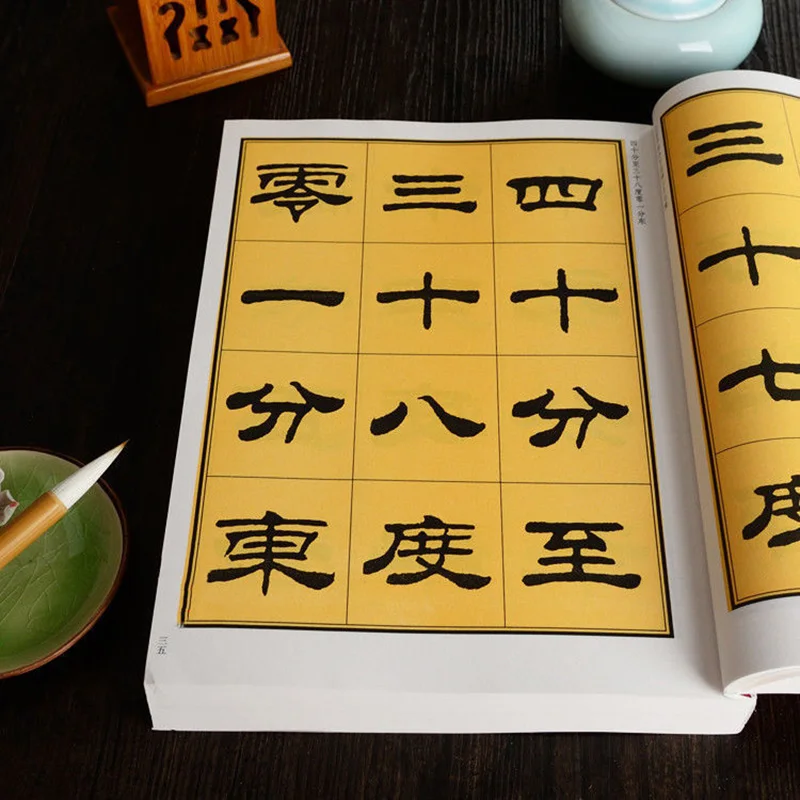 三十七度
四十分至三十八度零一分东
四十分至
三十八度
零一分東
三五